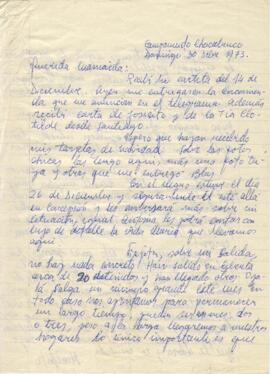 Campamento Chacabuco
Domingo 30 Dbre 1973.
Querida Mamacita:
Recibí tu carta del 14 de
Diciembre. Ayer me entregaron la encomienda
que me anuncian en el telegrama. Además
recibí carta de Jonsito y de la Tía Clo-
tilde desde Santiago.
Espero que hayan recibido
mis tarjetas de navidad. Todas las fotos
chicas las tengo aquí, más una foto tu-
ya y otras que me entregó Blas.
Con el negro estuve el día
26 de Diciembre y
en Concepción y les
situación, igual Antonio les podrá contar con
lujo de detalle la vida diaria que llevamos
aquí.
sobre mi salida
no hay nada concreto. Han salido en libertad
cerca de 20 detenidos y han llegado otros. Ojalá
salga un número grande este mes. En
todo caso nos aprontamos para permanecer
un largo tiempo, pueden ser meses, dos
o tres, pero a la larga llegaremos a nuestros
hogares. Lo único importante es que